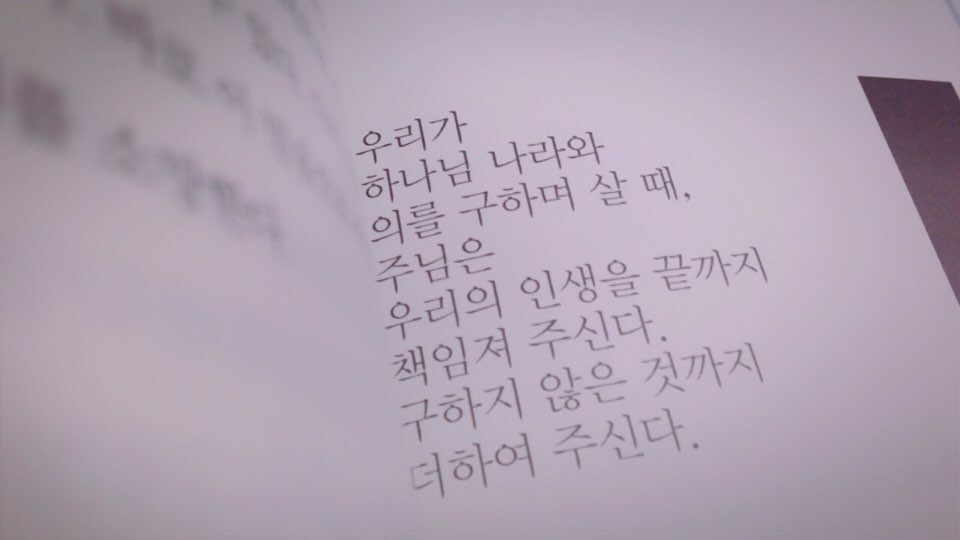 우리가
하나님 나라와
의를 구하며 살 때,
주님은
우리의 인생을 끝까지
책임져 주신다.
구하지 않은 것까지
더하여 주신다.